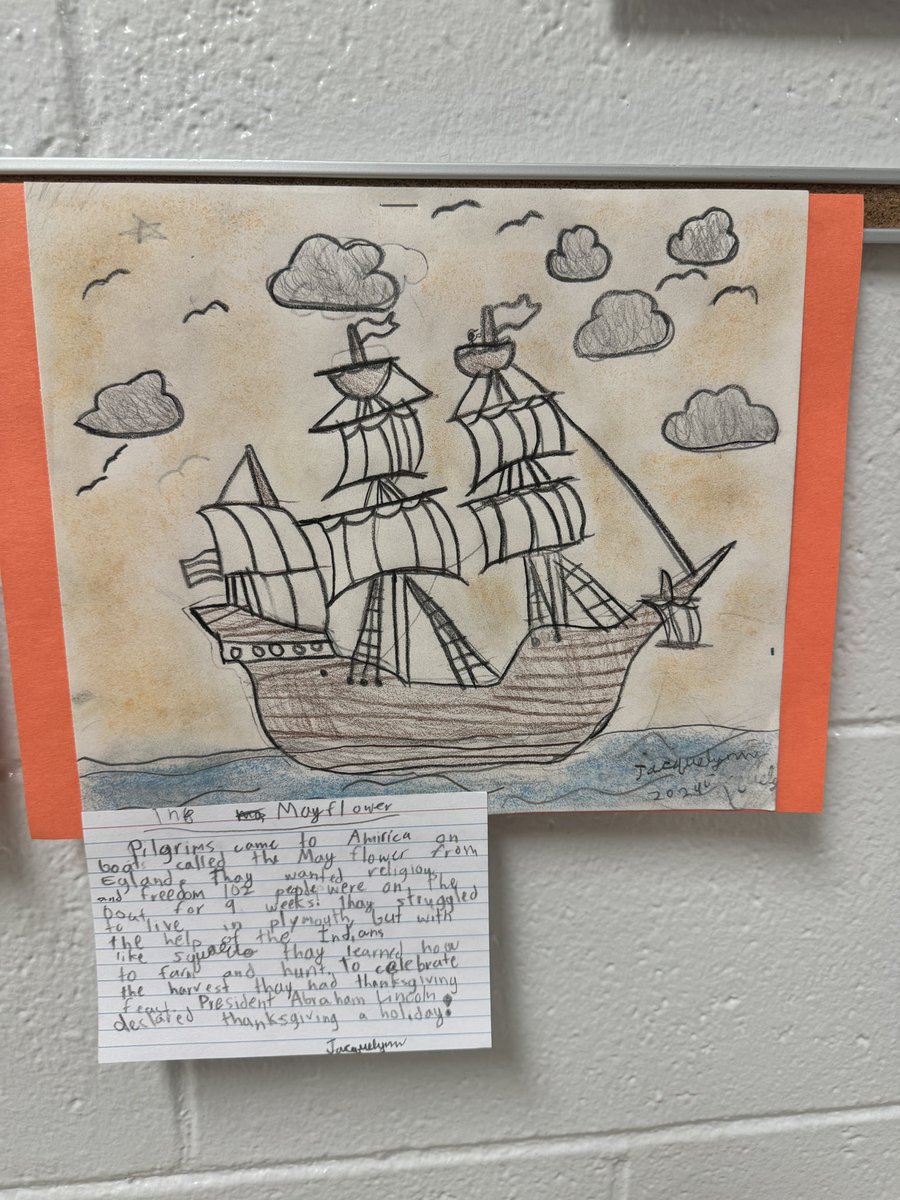 Jacquelynn
2024
The Mayflower
Pilgrims came to America on
boats called the May flower from
Egland. Thay wanted religious
and freedom 102 people were on the
bout for 9 weeks. thay struggled
to live in plymouth, but with
the help of the Indians
like squanto thay learned how
to farm and hunt. To celebrate
the harvest thay had thanksgiving
feast. President Abraham Lincoln
declared thanksgiving a holiday!
Jacquelynn